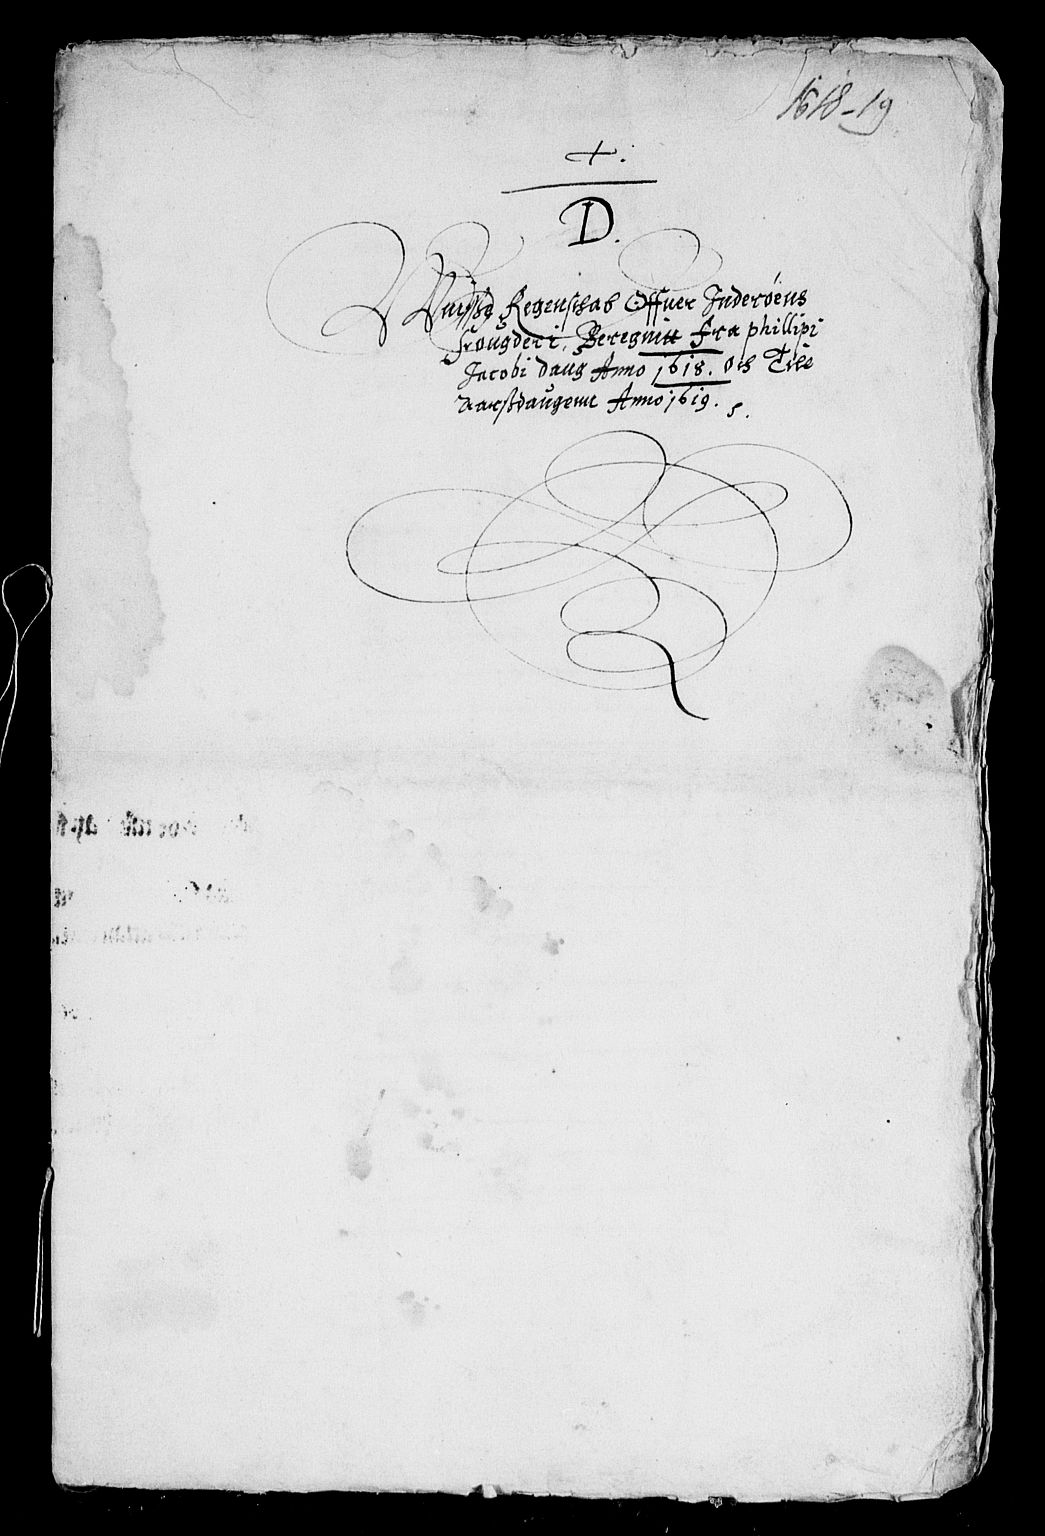 1618-19
+.
D.
Wisse Regenschab Offuer Inderøens
frougderi, Beregnitt Fra phillipi
Jacobi daug Anno 1618. Och Till
Aarssdaugenn Anno 1619.